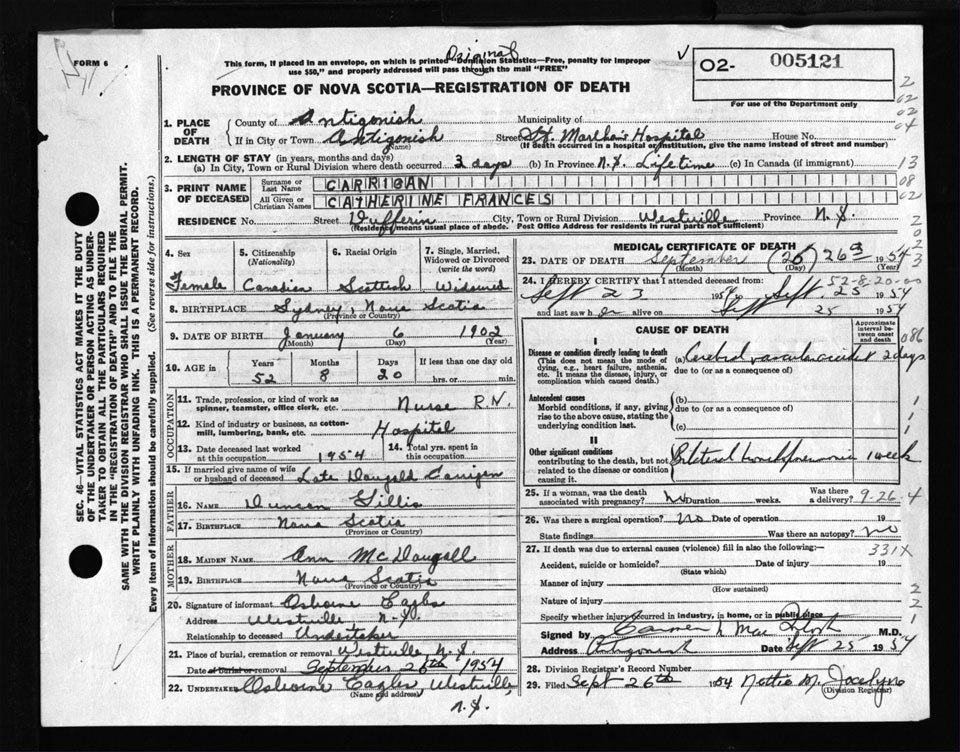 Original
FORM 6
This form, if placed in an envelope, on which is printed "Dominion Statistics—Free, penalty for improper
use $50," and properly addressed will pass through the mail "FREE"
02- 005121
For use of the Department only
PROVINCE OF NOVA SCOTIA—REGISTRATION OF DEATH
1. PLACE OF DEATH
County of Antigonish Municipality of
If in City or Town Antigonish Street St. Martha's Hospital House No.
(Name) (If death occurred in a hospital or institution, give the name instead of street and number)
2. LENGTH OF STAY (in years, months and days)
(a) In City, Town or Rural Division where death occurred 3 days (b) In Province N.S. Lifetime (c) In Canada (if immigrant)
3. PRINT NAME OF DECEASED
Surname or Last Name CARRIGAN
All Given or Christian Names CATHERINE FRANCES
RESIDENCE No. Street Dufferin City, Town or Rural Division Westville Province N.S.
(Residence means usual place of abode. Post Office Address for residents in rural parts not sufficient)
4. SEX 5. Citizenship (Nationality) 6. Racial Origin 7. Single, Married, Widowed or Divorced (write the word)
Female Canadian Scottish Widowed
8. BIRTHPLACE Sydney, Nova Scotia
(Province or Country)
9. DATE OF BIRTH January 6 1902
(Month) (Day) (Year)
10. AGE in Years Months Days If less than one day old
52 8 20 hrs. or min.
OCCUPATION
11. Trade, profession, or kind of work as spinner, teamster, office clerk, etc. Nurse R.N.
12. Kind of industry or business, as cotton-mill, lumbering, bank, etc. Hospital
13. Date deceased last worked at this occupation 1954 14. Total yrs. spent in this occupation
15. If married give name of wife or husband of deceased Late Dougald Carrigan
FATHER
16. NAME Duncan Gillis
17. BIRTHPLACE Nova Scotia
(Province or Country)
MOTHER
18. MAIDEN NAME Ann McDougall
19. BIRTHPLACE Nova Scotia
(Province or Country)
20. Signature of informant Osborne Eagles
Address Westville N.S.
Relationship to deceased Undertaker
21. Place of burial, cremation or removal Westville, N.S.
Date of burial or removal September 26th 1954
22. UNDERTAKER Osborne Eagles, Westville,
(Name and address)
N.S.
MEDICAL CERTIFICATE OF DEATH
23. DATE OF DEATH September (26) 26 1954
(Month) (Day) (Year)
52-8-20-00
24. I HEREBY CERTIFY that I attended deceased from
Sept 23 1954 to Sept. 25 1954
and last saw her alive on Sept 25 1954
CAUSE OF DEATH
Approximate interval between onset and death
I
Disease or condition directly leading to death
(This does not mean the mode of dying, e.g., heart failure, asthenia, etc. It means the disease, injury, or complication which caused death.)
(a) Cerebral vascular accident 2 days
due to (or as a consequence of)
Antecedent causes
Morbid conditions, if any, giving rise to the above cause, stating the underlying condition last.
(b)
due to (or as a consequence of)
(c)
II
Other significant conditions
contributing to the death, but not related to the disease or condition causing it.
Bilateral bronchopneumonia 1 week
25. If a woman, was the death associated with pregnancy? No Duration weeks. Was there a delivery?
9-26-4
26. Was there a surgical operation? no Date of operation 19
State findings Was there an autopsy? no
27. If death was due to external causes (violence) fill in also the following:— 331X
Accident, suicide or homicide? Date of injury 19
(State which)
Manner of injury
(How sustained)
Nature of injury
Specify whether injury occurred in industry, in home, or in public place
Signed by M.D.
Address Antigonish Date Sept 25 1954
28. Division Registrar's Record Number
29. Filed Sept 26th 1954 Nettie M. Jocelyn
(Division Registrar)
SEC. 46—VITAL STATISTICS ACT MAKES IT THE DUTY
OF THE UNDERTAKER OR PERSON ACTING AS UNDER-
TAKER TO OBTAIN ALL THE PARTICULARS REQUIRED
IN THE "REGISTRATION OF DEATH" AND TO FILE THE
SAME WITH THE DIVISION REGISTRAR WHO SHALL ISSUE THE BURIAL PERMIT.
WRITE PLAINLY WITH UNFADING INK. THIS IS A PERMANENT RECORD.
Every item of information should be carefully supplied. (See reverse side for instructions.)
2
02
02
04
13
08
02
086